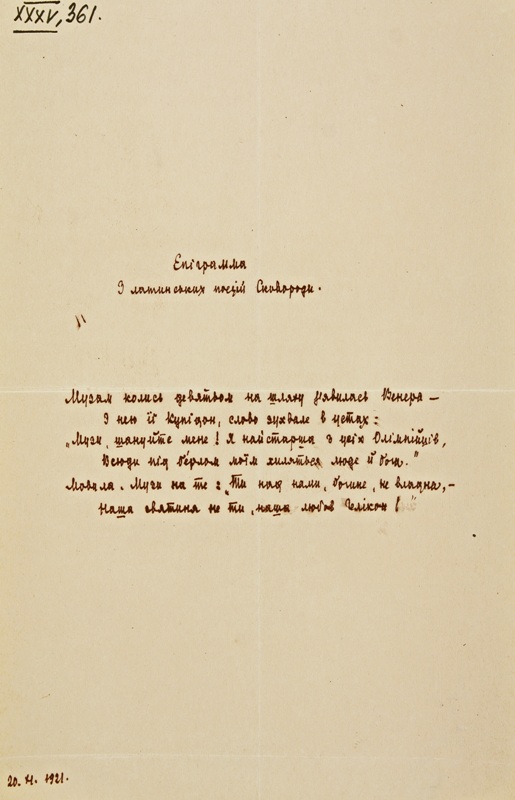 XXXV, 361.
Епіграмма
З латинських поезій Сковороди.
Музам колись девятьом на шляху зʼявилась Венера —
З нею її Купідон, слово зухвале в устах:
„Музи, шануйте мене! Я найстарша з усіх Олімпійців,
Всюди під берлом моїм хиляться люде й боги."
Мовила. Музи на те: „Ти над нами, богине, не владна, —
Наша святиня не ти, наша любов Гелікон!"
20. 1921.